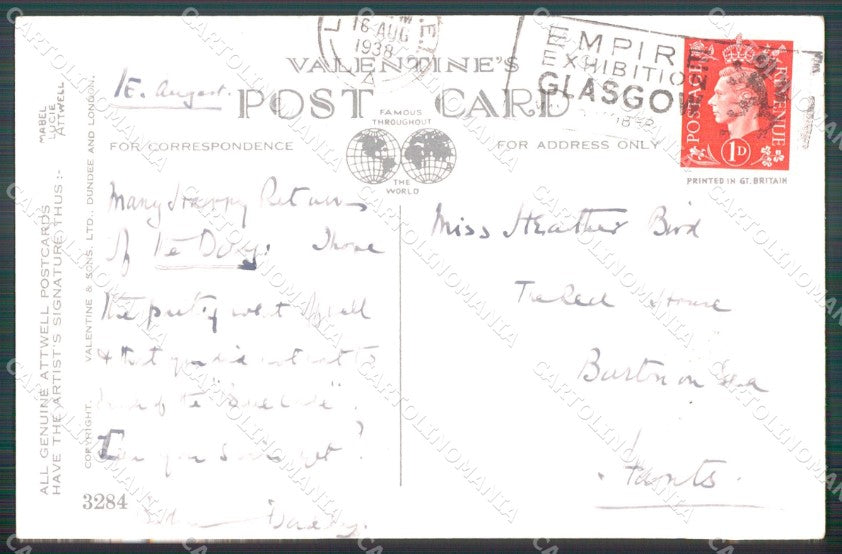 16 AUG
1938
EMPIRE
EXHIBITION
GLASGOW
POSTAGE REVENUE
1D
PRINTED IN GT. BRITAIN
VALENTINE'S
POST CARD
FAMOUS
THROUGHOUT
THE
WORLD
FOR CORRESPONDENCE
FOR ADDRESS ONLY
MABEL
LUCIE
ATTWELL
ALL GENUINE ATTWELL POSTCARDS
HAVE THE ARTIST'S SIGNATURE THUS:-
COPYRIGHT. VALENTINE & SONS, LTD., DUNDEE AND LONDON.
3284
16. August.
Many Happy Returns
of the Day.
the party went well
Can you swim yet?
Daddy.
Miss Heather Bird
The Red House
Barton on Sea
Hants.
CARTOLINOMANIA